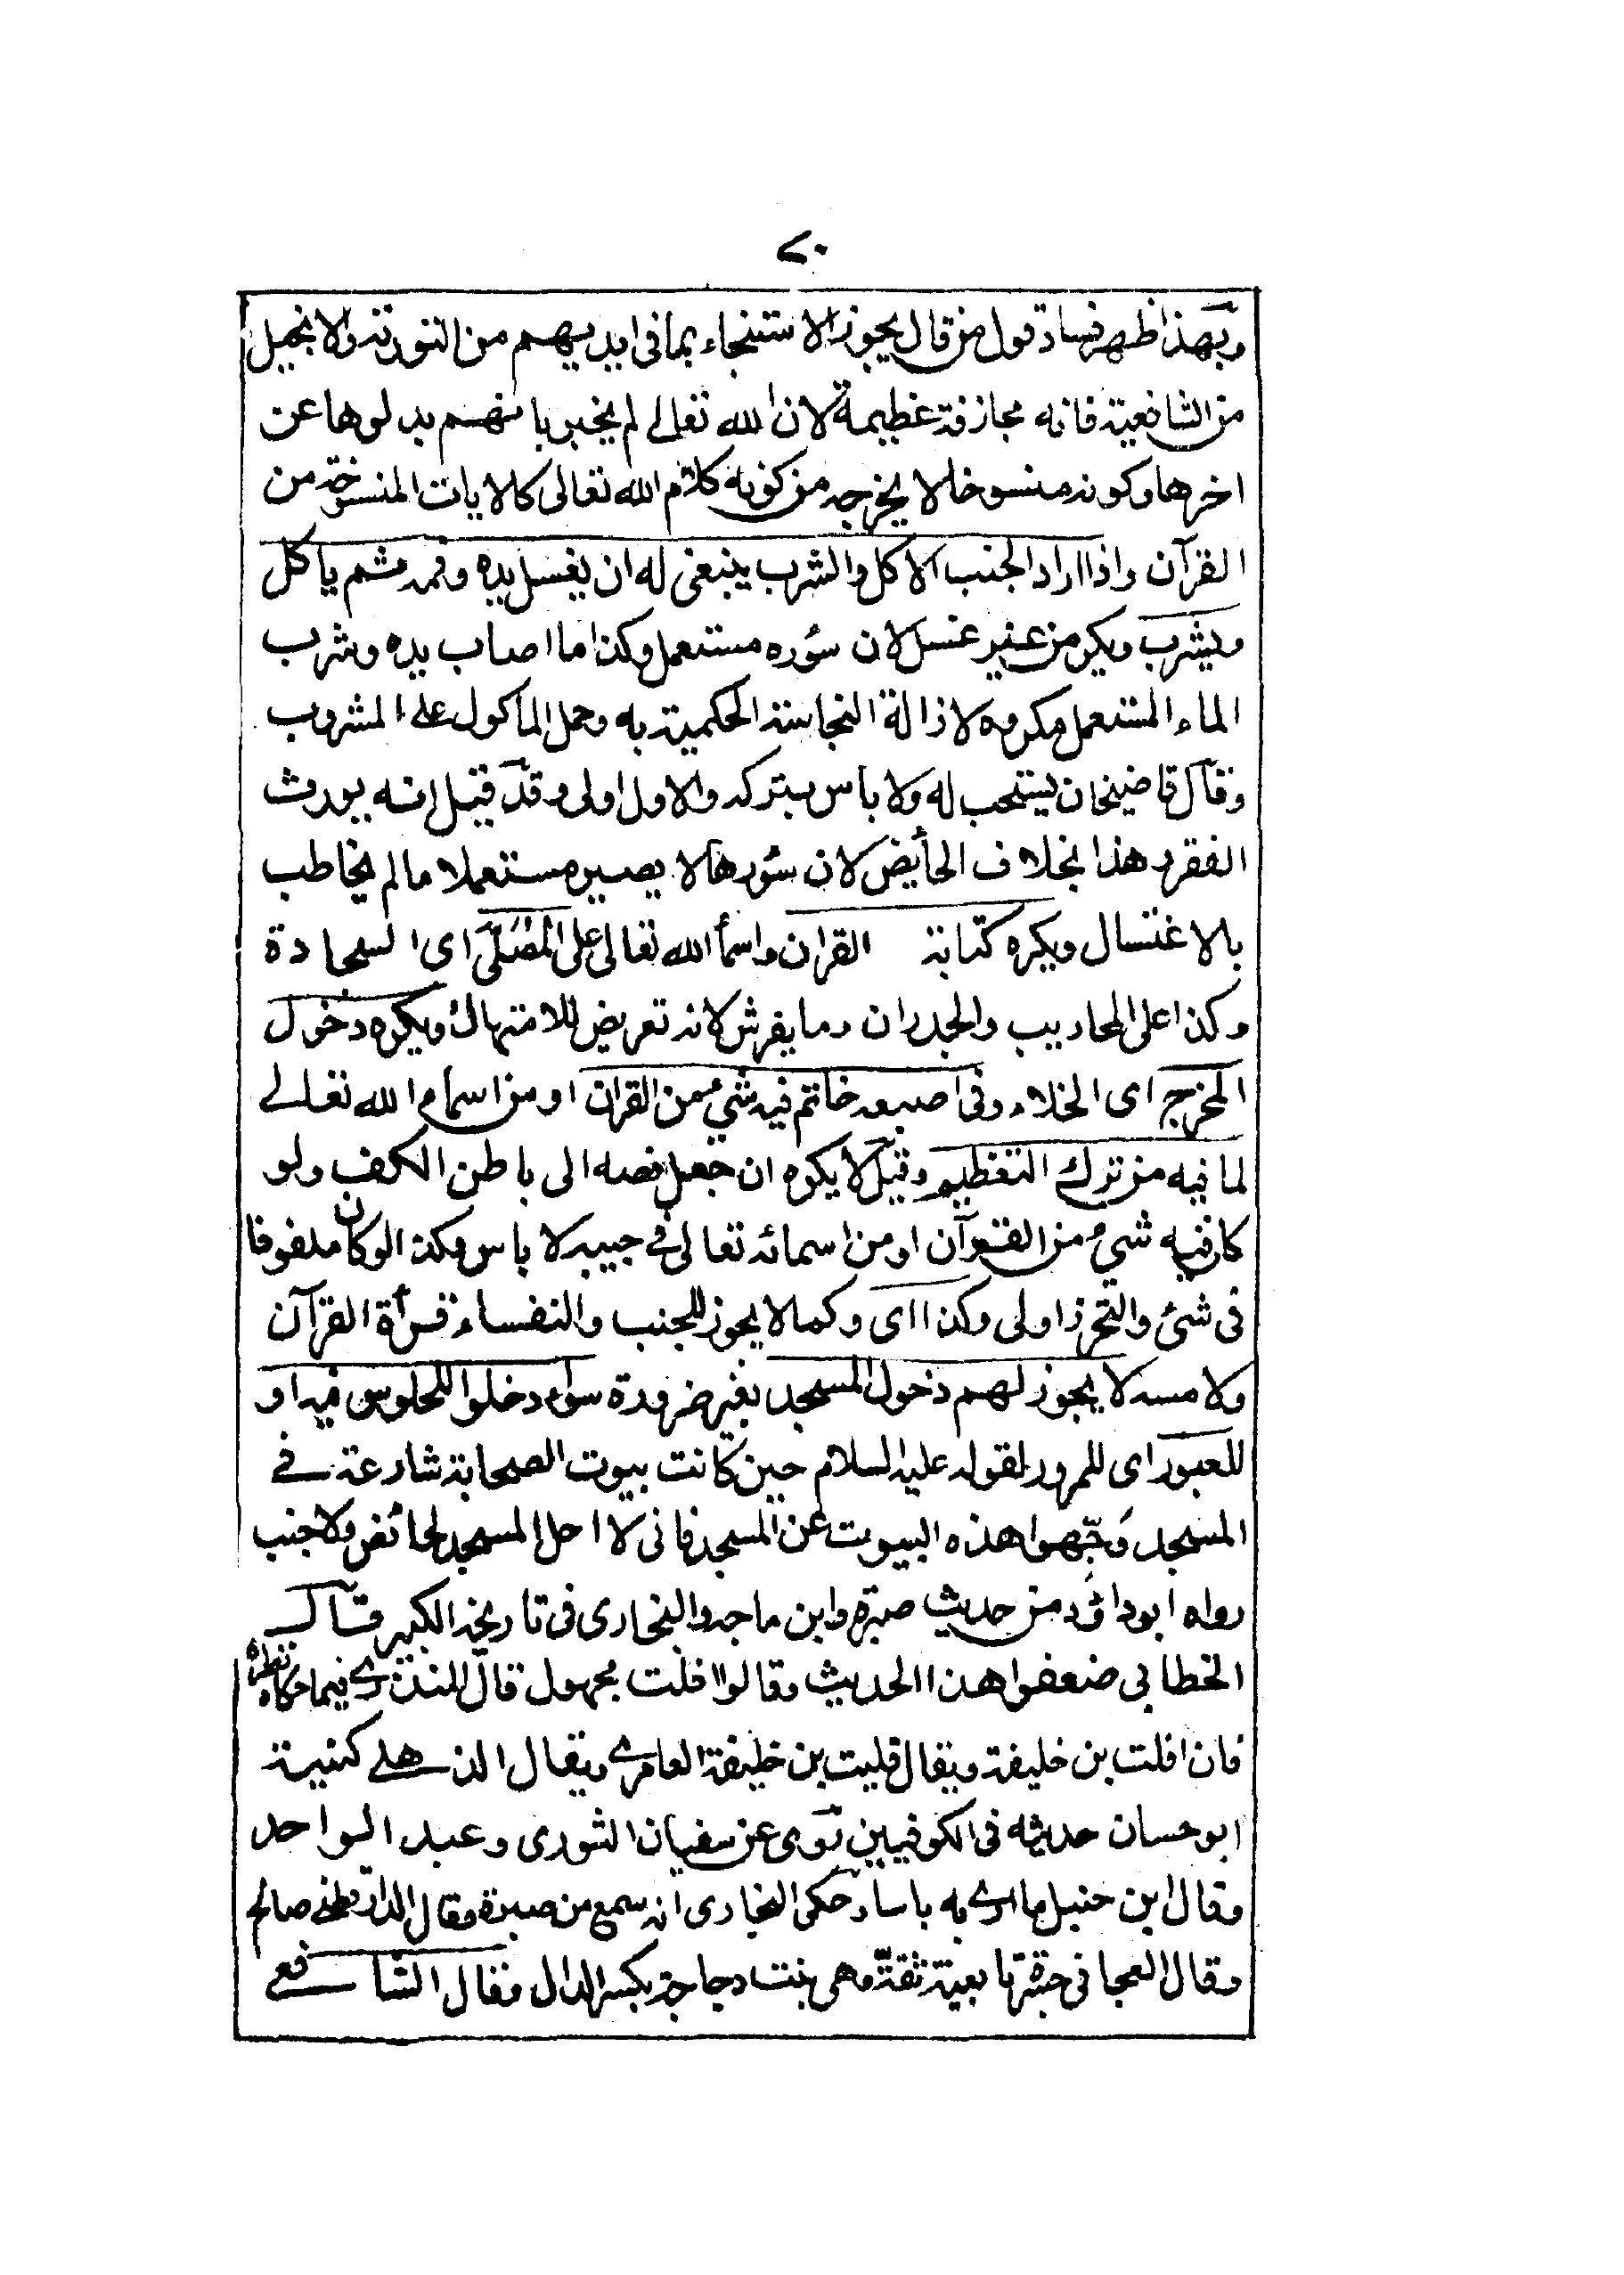 ٧٠
وبهذا ظهر فساد قول من قال يجوز الاستنجاء بما فى ايديهم من التورية والانجيل
من الشافعية فانه مجازفة عظيمة لان الله تعالى لم يخبر بانهم بدلوها عن
اخرها وكونه منسوخا لا يخرجه من كونه كلام الله تعالى كالايات المنسوخة من
القرآن واذا اراد الجنب الاكل والشرب ينبغى له ان يغسل يده وفمه ثم ياكل
ويشرب ويكره من غير غسل لان سؤره مستعمل وكذا ما اصاب يده وشرب
الماء المستعمل مكروه لازالة النجاسة الحكمية به وحمل المأكول على المشروب
وقال قاضيخان يستحب له ولا باس بتركه والاول اولى وقد قيل انه يورث
الفقر وهذا بخلاف الحايض لان سؤرها لا يصير مستعملا ما لم يخاطب
بالاغتسال ويكره كتابة القران واسمأ الله تعالى على المصلّى اى السجادة
وكذا على المحاريب والجدران وما يفرش لانه تعريض للامتهان ويكره دخول
المخرج اى الخلاء وفى اصبعه خاتم فيه شئ من القران او من اسماء الله تعالے
لما فيه من ترك التعظيم وقيل لا يكره ان جعل فصه الى باطن الكف ولو
كان فيه شئ من القرآن او من اسمائه تعالى فى جيبه لا باس وكذا لو كان ملفوفا
فى شئ والتحرز اولى وكذا اى وكما لا يجوز للجنب والنفساء قرأة القرآن
ولا مسه لا يجوز لهم دخول المسجد بغير ضرورة سواء دخلوا للجلوس فيه او
للعبور اى للمرور لقوله عليه السلام حين كانت بيوت الصحابة شارعة فے
المسجد وجّهوا هذه البيوت عن المسجد فانى لا احل المسجد لحائض ولا جنب
رواه ابو داؤد من حديث جسرة وابن ماجه والبخارى فى تاريخه الكبير قال
الخطابى ضعفوا هذا الحديث وقالوا افلت مجهول قال المنذرے فيما حكاه نظر
فان افلت بن خليفة ويقال فليت بن خليفة العامرے ويقال الذهلے كنيته
ابو حسان حديثه فى الكوفيين روى عن سفيان الثورى وعبد الواحد
وقال ابن حنبل ما ارے به باسا وحكى البخارى انه سمع من جسرة وقال الدارقطنے صالح
وقال العجلى فى جسرة تابعية ثقة وهى بنت دجاجة بكسر الدال وقال الشافعے